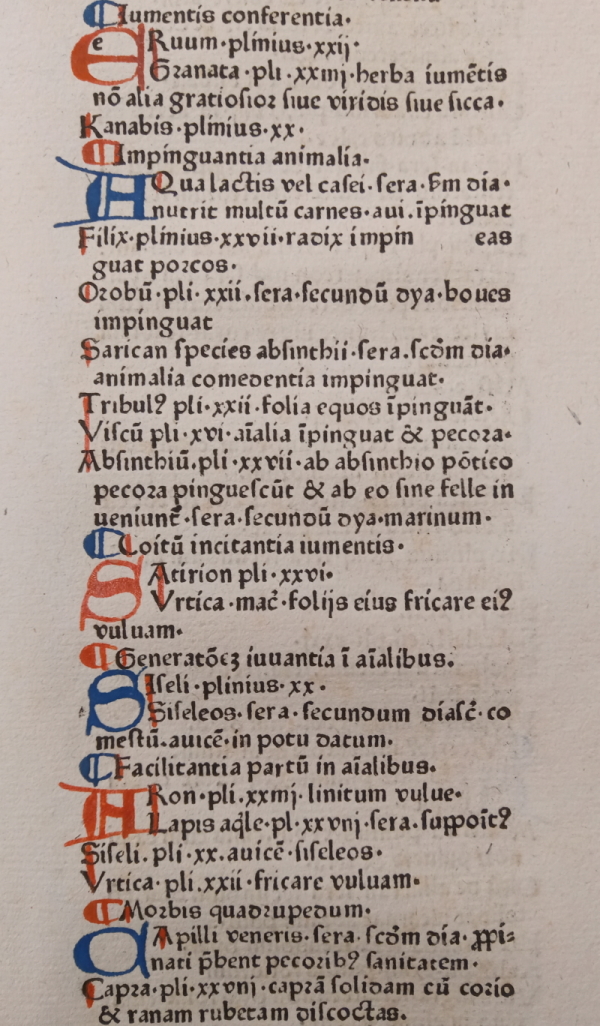 Iumentis conferentia.
ERuum.plinius.xxij.
Granata.pli.xxiiij.herba iumētis
nō alia gratiosior siue viridis siue sicca.
Kanabis.plinius.xx.
Impinguantia animalia.
AQua lactis vel casei.sera.ẜm dia.
nutrit multū carnes.aui.īpinguat
Filix.plinius.xxvii.radix impin eas
guat porcos.
Orobū.pli.xxii.sera.secundū dya.boues
impinguat
Sarican species absinthii.sera.scd̄m dia.
animalia comedentia impinguat.
Tribulꝰ pli.xxii.folia equos īpinguāt.
Viscū pli.xvi.aīalia īpinguat & pecora.
Absinthiū.pli.xxvii.ab absinthio pōtico
pecora pinguescūt & ab eo sine felle in
ueniunt̄.sera.secundū dya.marinum.
Coitū incitantia iumentis.
SAtirion pli.xxvi.
Vrtica.mac̄.folijs eius fricare eiꝰ
vuluam.
Generatōēꝫ iuuantia ī aīalibus.
SIseli.plinius.xx.
Siseleos.sera.secundum diasc̄.co
mestū.auicē.in potu datum.
Facilitantia partū in aīalibus.
ARon.pli.xxiiij.linitum vulue.
Lapis aq̄le.pl.xxviij.sera.suppoīt̉
Siseli.pli.xx.auicē.siseleos.
Vrtica.pli.xxii.fricare vuluam.
Morbis quadrupedum.
CApilli veneris.sera.scd̄m dia.ꝓpi⸗
nati p̄bent pecoribꝰ sanitatem.
Capra.pli.xxviij.caprā solidam cū corio
& ranam rubetam discoctas.